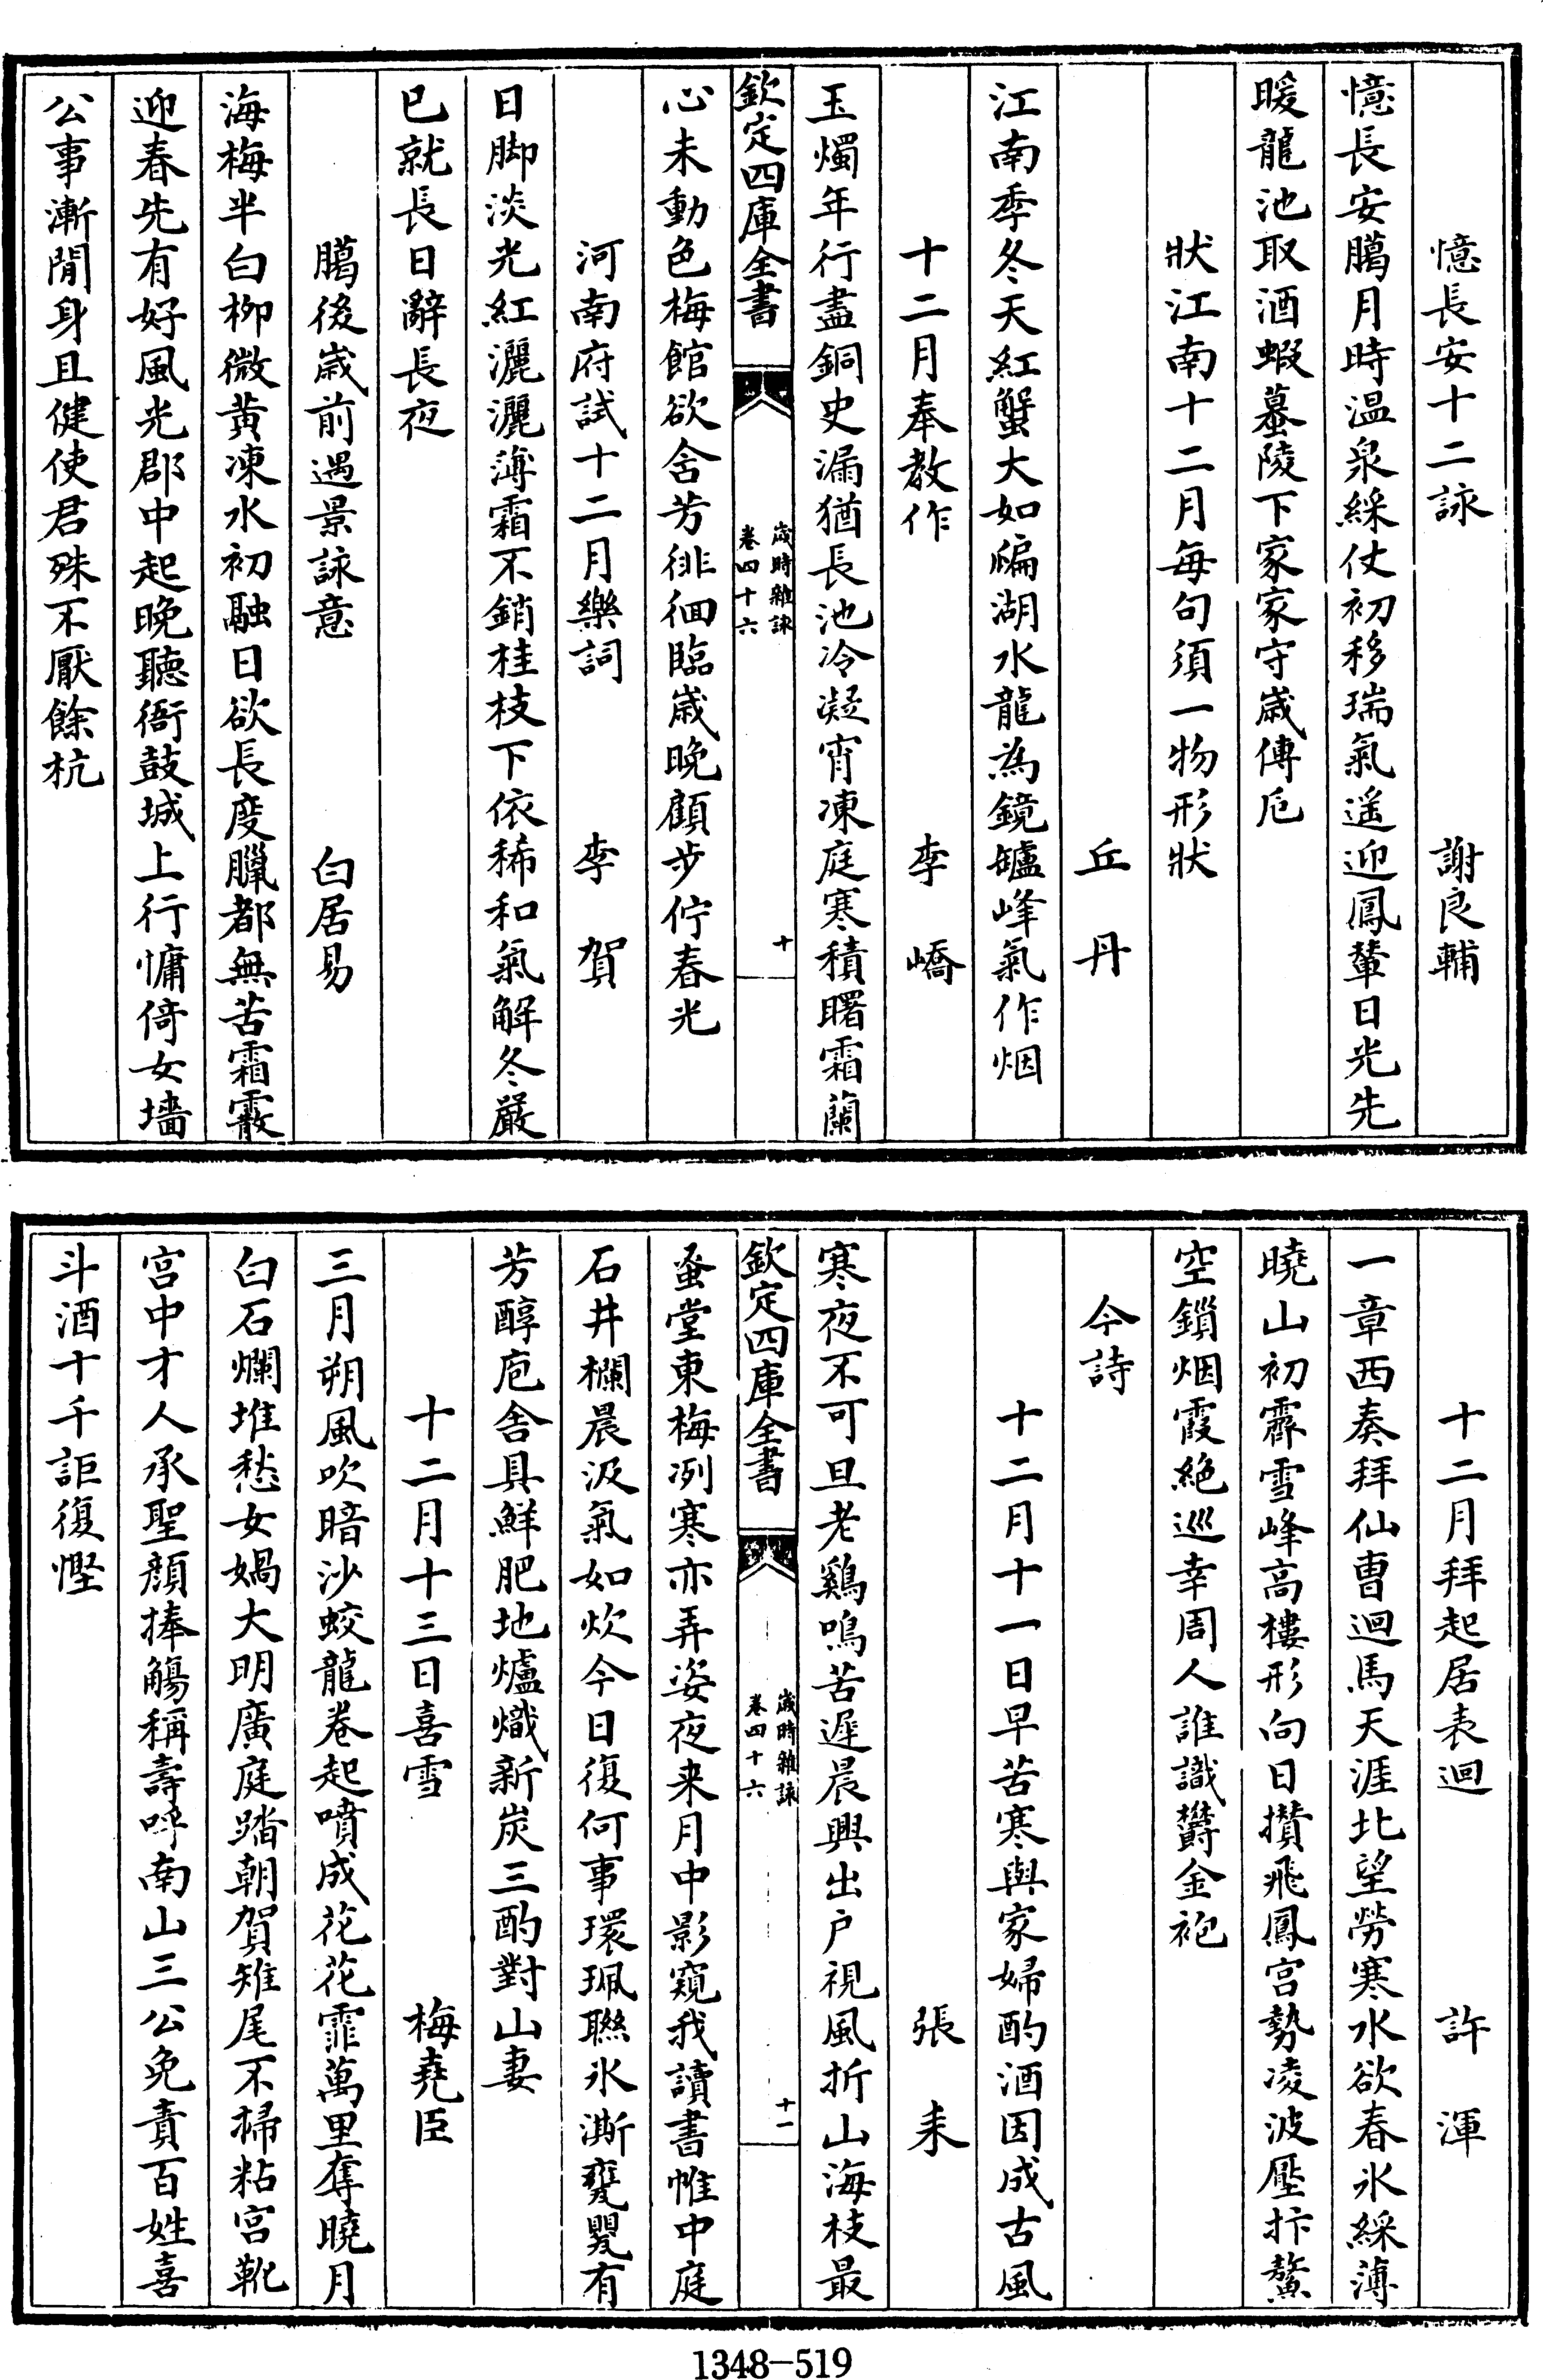 憶長安十二詠　謝良輔
憶長安臈月時温泉綵仗初移瑞氣遥迎鳳輦日光先
暖龍池取酒蝦蟇陵下家家守歳傳巵
狀江南十二月每句須一物形狀
丘丹
江南季冬天紅蟹大如䱍湖水龍為鏡罏峰氣作烟
十二月奉教作　李嶠
玉燭年行盡銅史漏猶長池冷凝宵凍庭寒積曙霜蘭
心未動色梅館欲含芳徘徊臨歲晚顧步佇春光
河南府試十二月樂詞　李賀
日脚淡光紅灑灑薄霜不銷桂枝下依稀和氣解冬嚴
已就長日辭長夜
臈後歳前遇景詠意　白居易
海梅半白柳微黃凍水初融日欲長度臘都無苦霜霰
迎春先有好風光郡中起晚聽衙鼓城上行慵倚女墻
公事漸閒身且健使君殊不厭餘杭
欽定四庫全書
歲時雜詠
卷四十六
十
十二月拜起居表迴　許渾
一章西奏拜仙曹迴馬天涯北望勞寒水欲春氷綵薄
曉山初霽雪峰高樓形向日攅飛鳳宮勢凌波壓抃鰲
空鎻烟霞絶巡幸周人誰識鬱金袍
今詩
十二月十一日早苦寒與家婦酌酒因成古風
張耒
寒夜不可旦老鷄鳴苦遲晨興出户視風折山海枝最
蚤堂東梅冽寒亦弄姿夜来月中影窺我讀書帷中庭
石井欄晨汲氣如炊今日復何事環珮聯氷澌甕甖有
芳醇庖舍具鮮肥地爐熾新炭三酌對山妻
十二月十三日喜雪　梅堯臣
三月朔風吹暗沙蛟龍卷起噴成花花霏萬里奪曉月
白石爛堆愁女媧大明廣庭踏朝賀雉尾不掃粘宮靴
宮中才人承聖顔捧觴稱壽呼南山三公免責百姓喜
斗酒十千詎復慳
欽定四庫全書
歲時雜詠
卷四十六
十一
1348-519